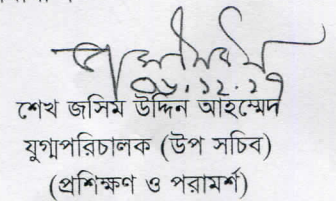 ০৬.১২.১৭
শেখ জসিম উদ্দিন আহম্মেদ
যুগ্মপরিচালক (উপ সচিব)
(প্রশিক্ষণ ও পরামর্শ)